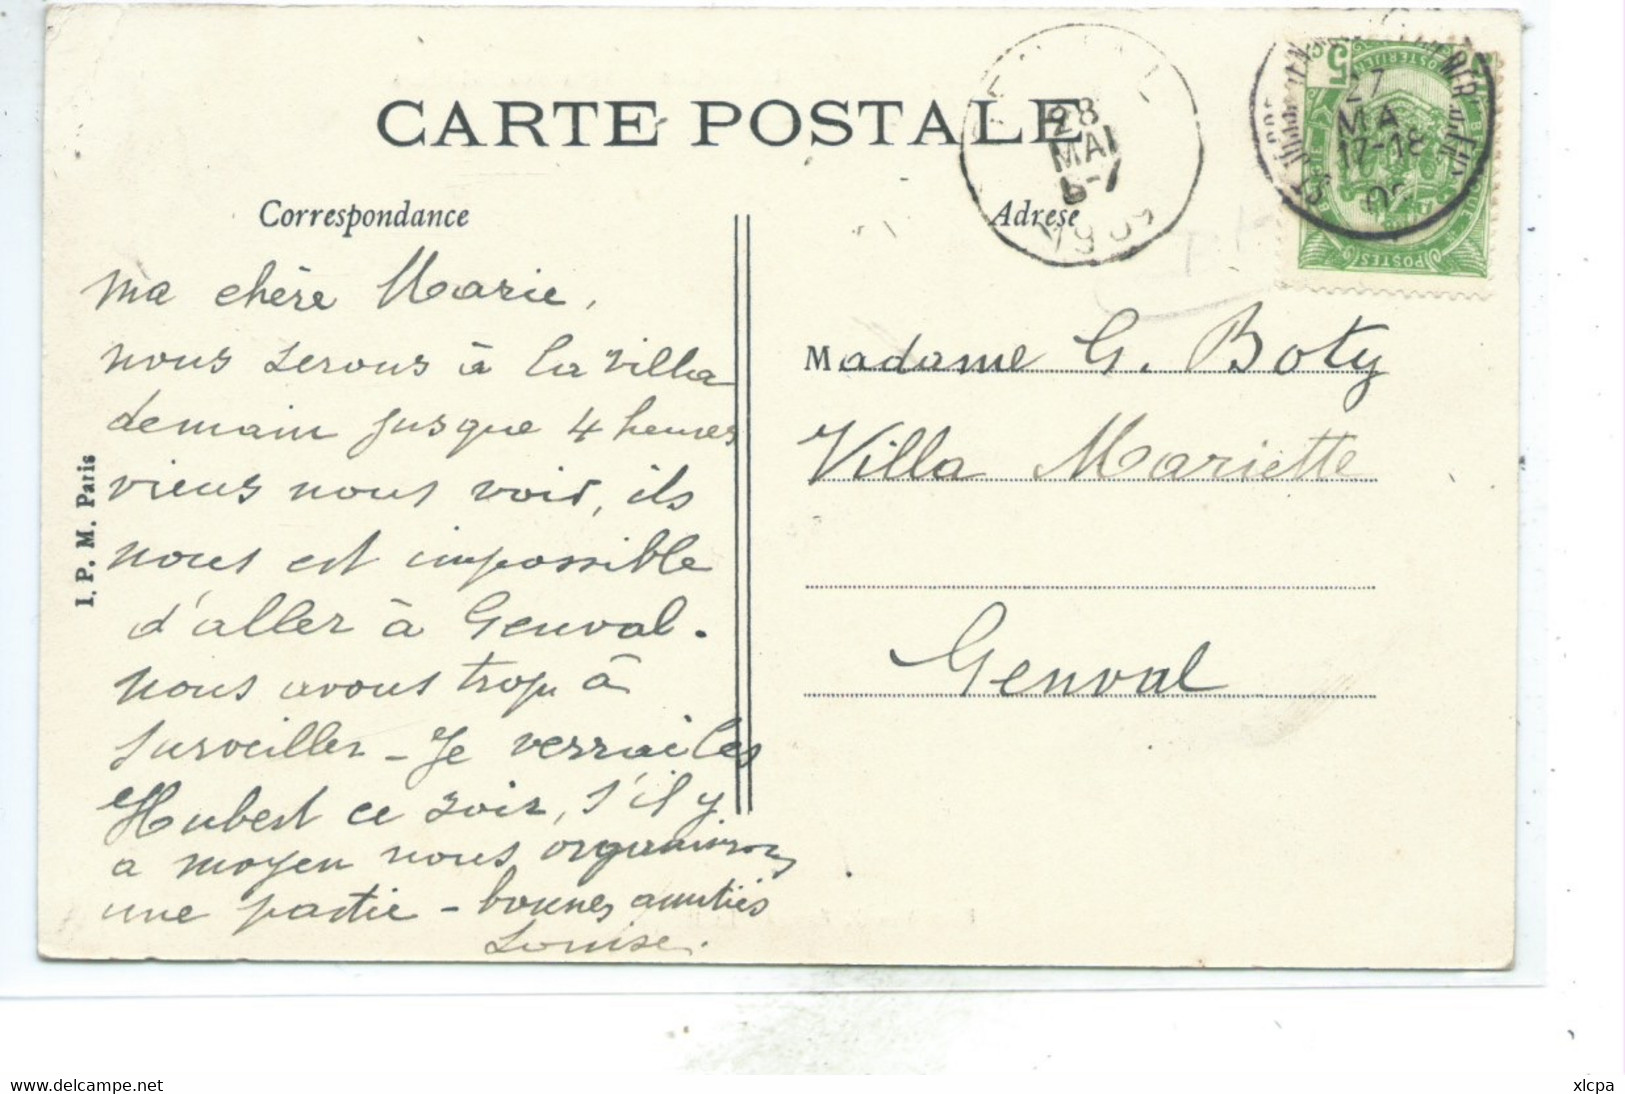 CARTE POSTALE
Correspondance
ma chère Marie,
nous serons à la villa
demain jusque 4 heures
viens nous voir, ils
nous est impossible
d'aller à Genval.
nous avons trop à
surveiller - Je verrai les
Hubert ce soir, s'il y
a moyen nous organiserons
une partie - bonnes amitiés
Louise.
I. P. M. Paris
Adrese
Madame G. Boty
Villa Mariette
Genval
28
MAI
6-7
27
MAI
17-18
5
POSTES
www.delcampe.net
xlcpa